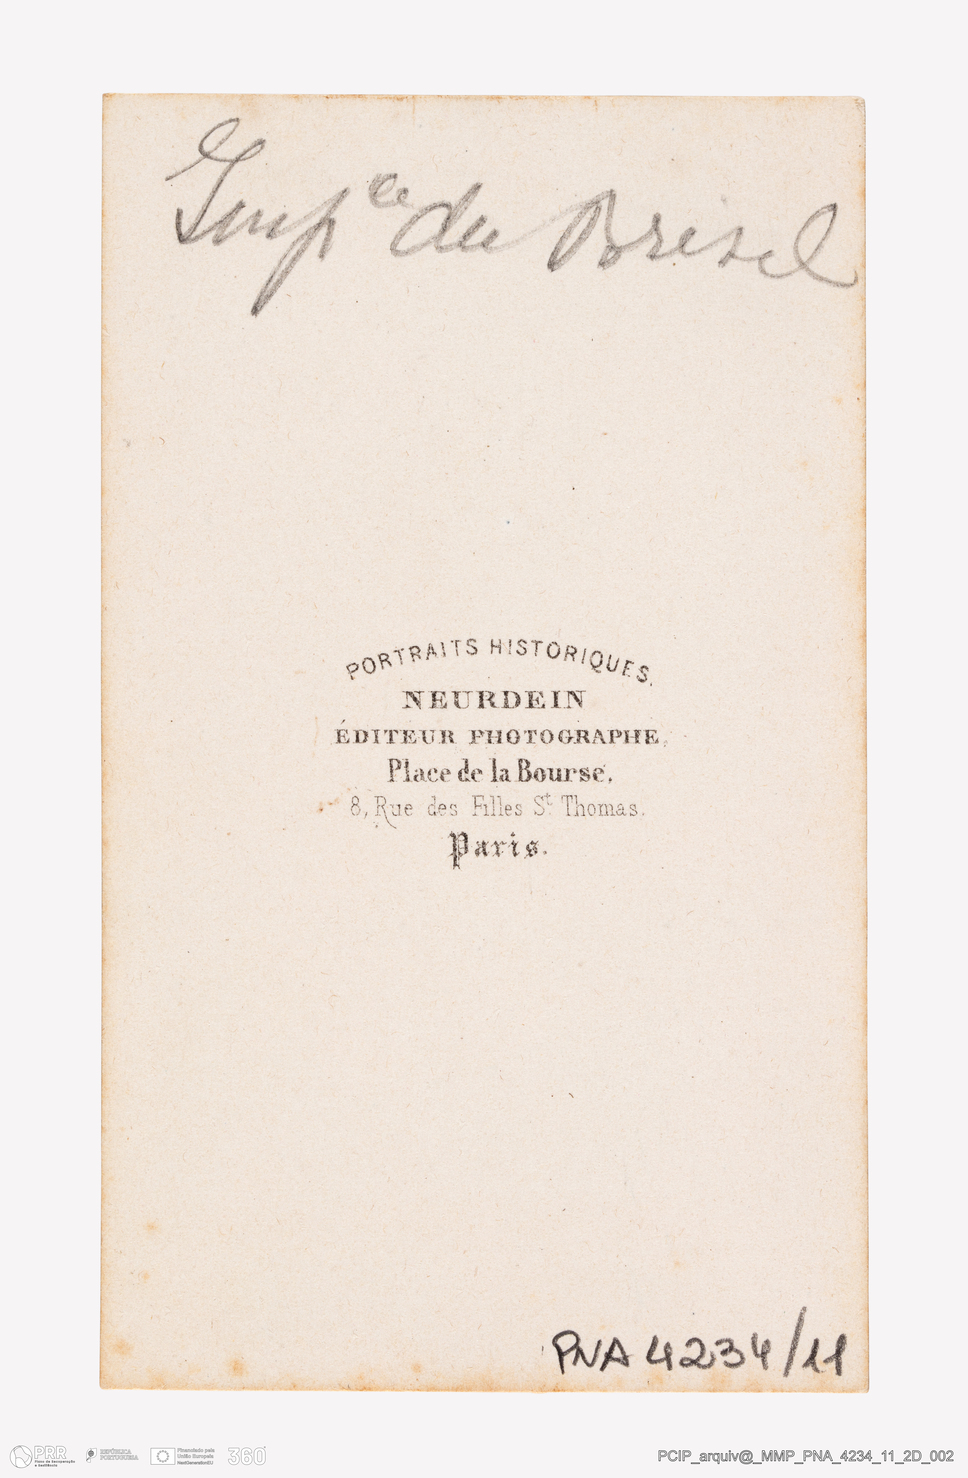 Imp.ce du Bresil
PORTRAITS HISTORIQUES.
NEURDEIN
ÉDITEUR PHOTOGRAPHE.
Place de la Bourse,
8, Rue des Filles St. Thomas.
Paris.
PNA 4234/11
PRR
Plano de Recuperação
e Resiliência
REPÚBLICA
PORTUGUESA
Financiado pela
União Europeia
NextGenerationEU
360°
PCIP_arquiv@_MMP_PNA_4234_11_2D_002